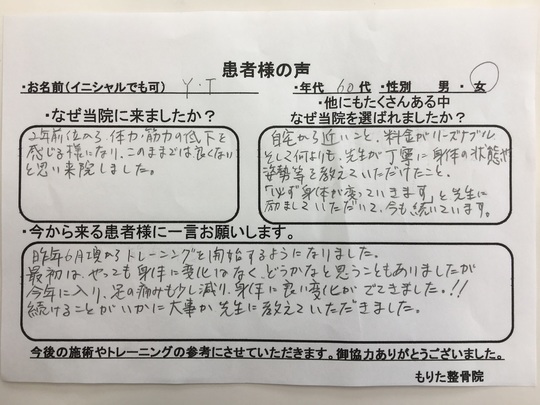 患者様の声
・お名前(イニシャルでも可) Y・T ・年代 60代 ・性別 男・女
・なぜ当院に来ましたか?
2年前位から、体力・筋力の低下を
感じる様になり、このままでは良くない
と思い来院しました。
・他にもたくさんある中
なぜ当院を選ばれましたか?
自宅から近いこと、料金がリーズナブル
そして何よりも、先生が丁寧に身体の状態や
姿勢等を教えていただけたこと。
「必ず身体が変っていきます」と先生に
励ましていただいて、今も続いています。
・今から来る患者様に一言お願いします。
昨年6月頃からトレーニングを開始するようになりました。
最初は、やっても身体に変化はなく、どうかなと思うこともありましたが
今年に入り、足の痛みも少し減り、身体に良い変化がでてきました。!!
続けることがいかに大事か先生に教えていただきました。
今後の施術やトレーニングの参考にさせていただきます。御協力ありがとうございました。
もりた整骨院